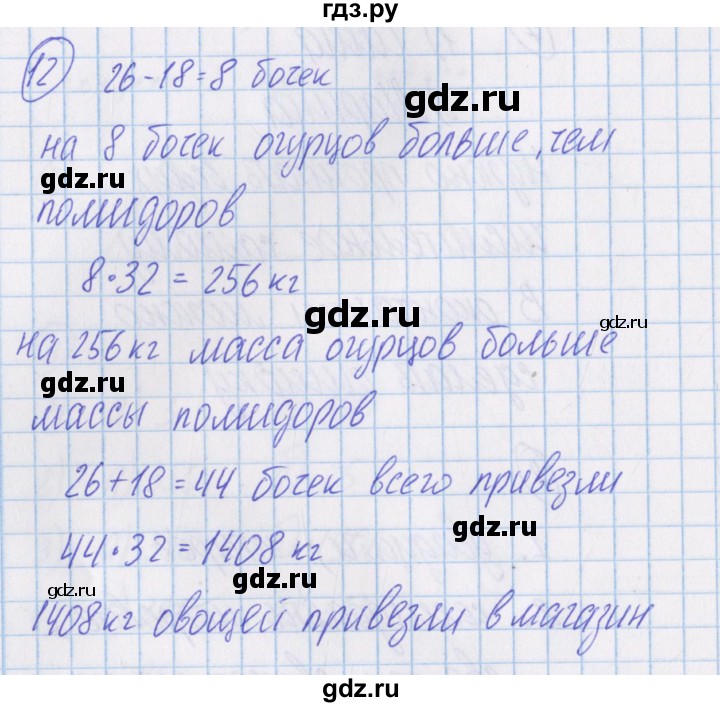 гдз.ру
12 26-18=8 бочек
gdz.ru
на 8 бочек огурцов больше, чем
gdz.ru
помидоров
8·32 = 256 кг
gdz.ru
gdz.ru
на 256 кг масса огурцов больше
gdz.ru
массы помидоров
26+18=44 бочек всего привезли
gdz.ru
44·32=1408 кг
gdz.ru
gdz.ru
1408 кг овощей привезли в магазин
gdz.ru